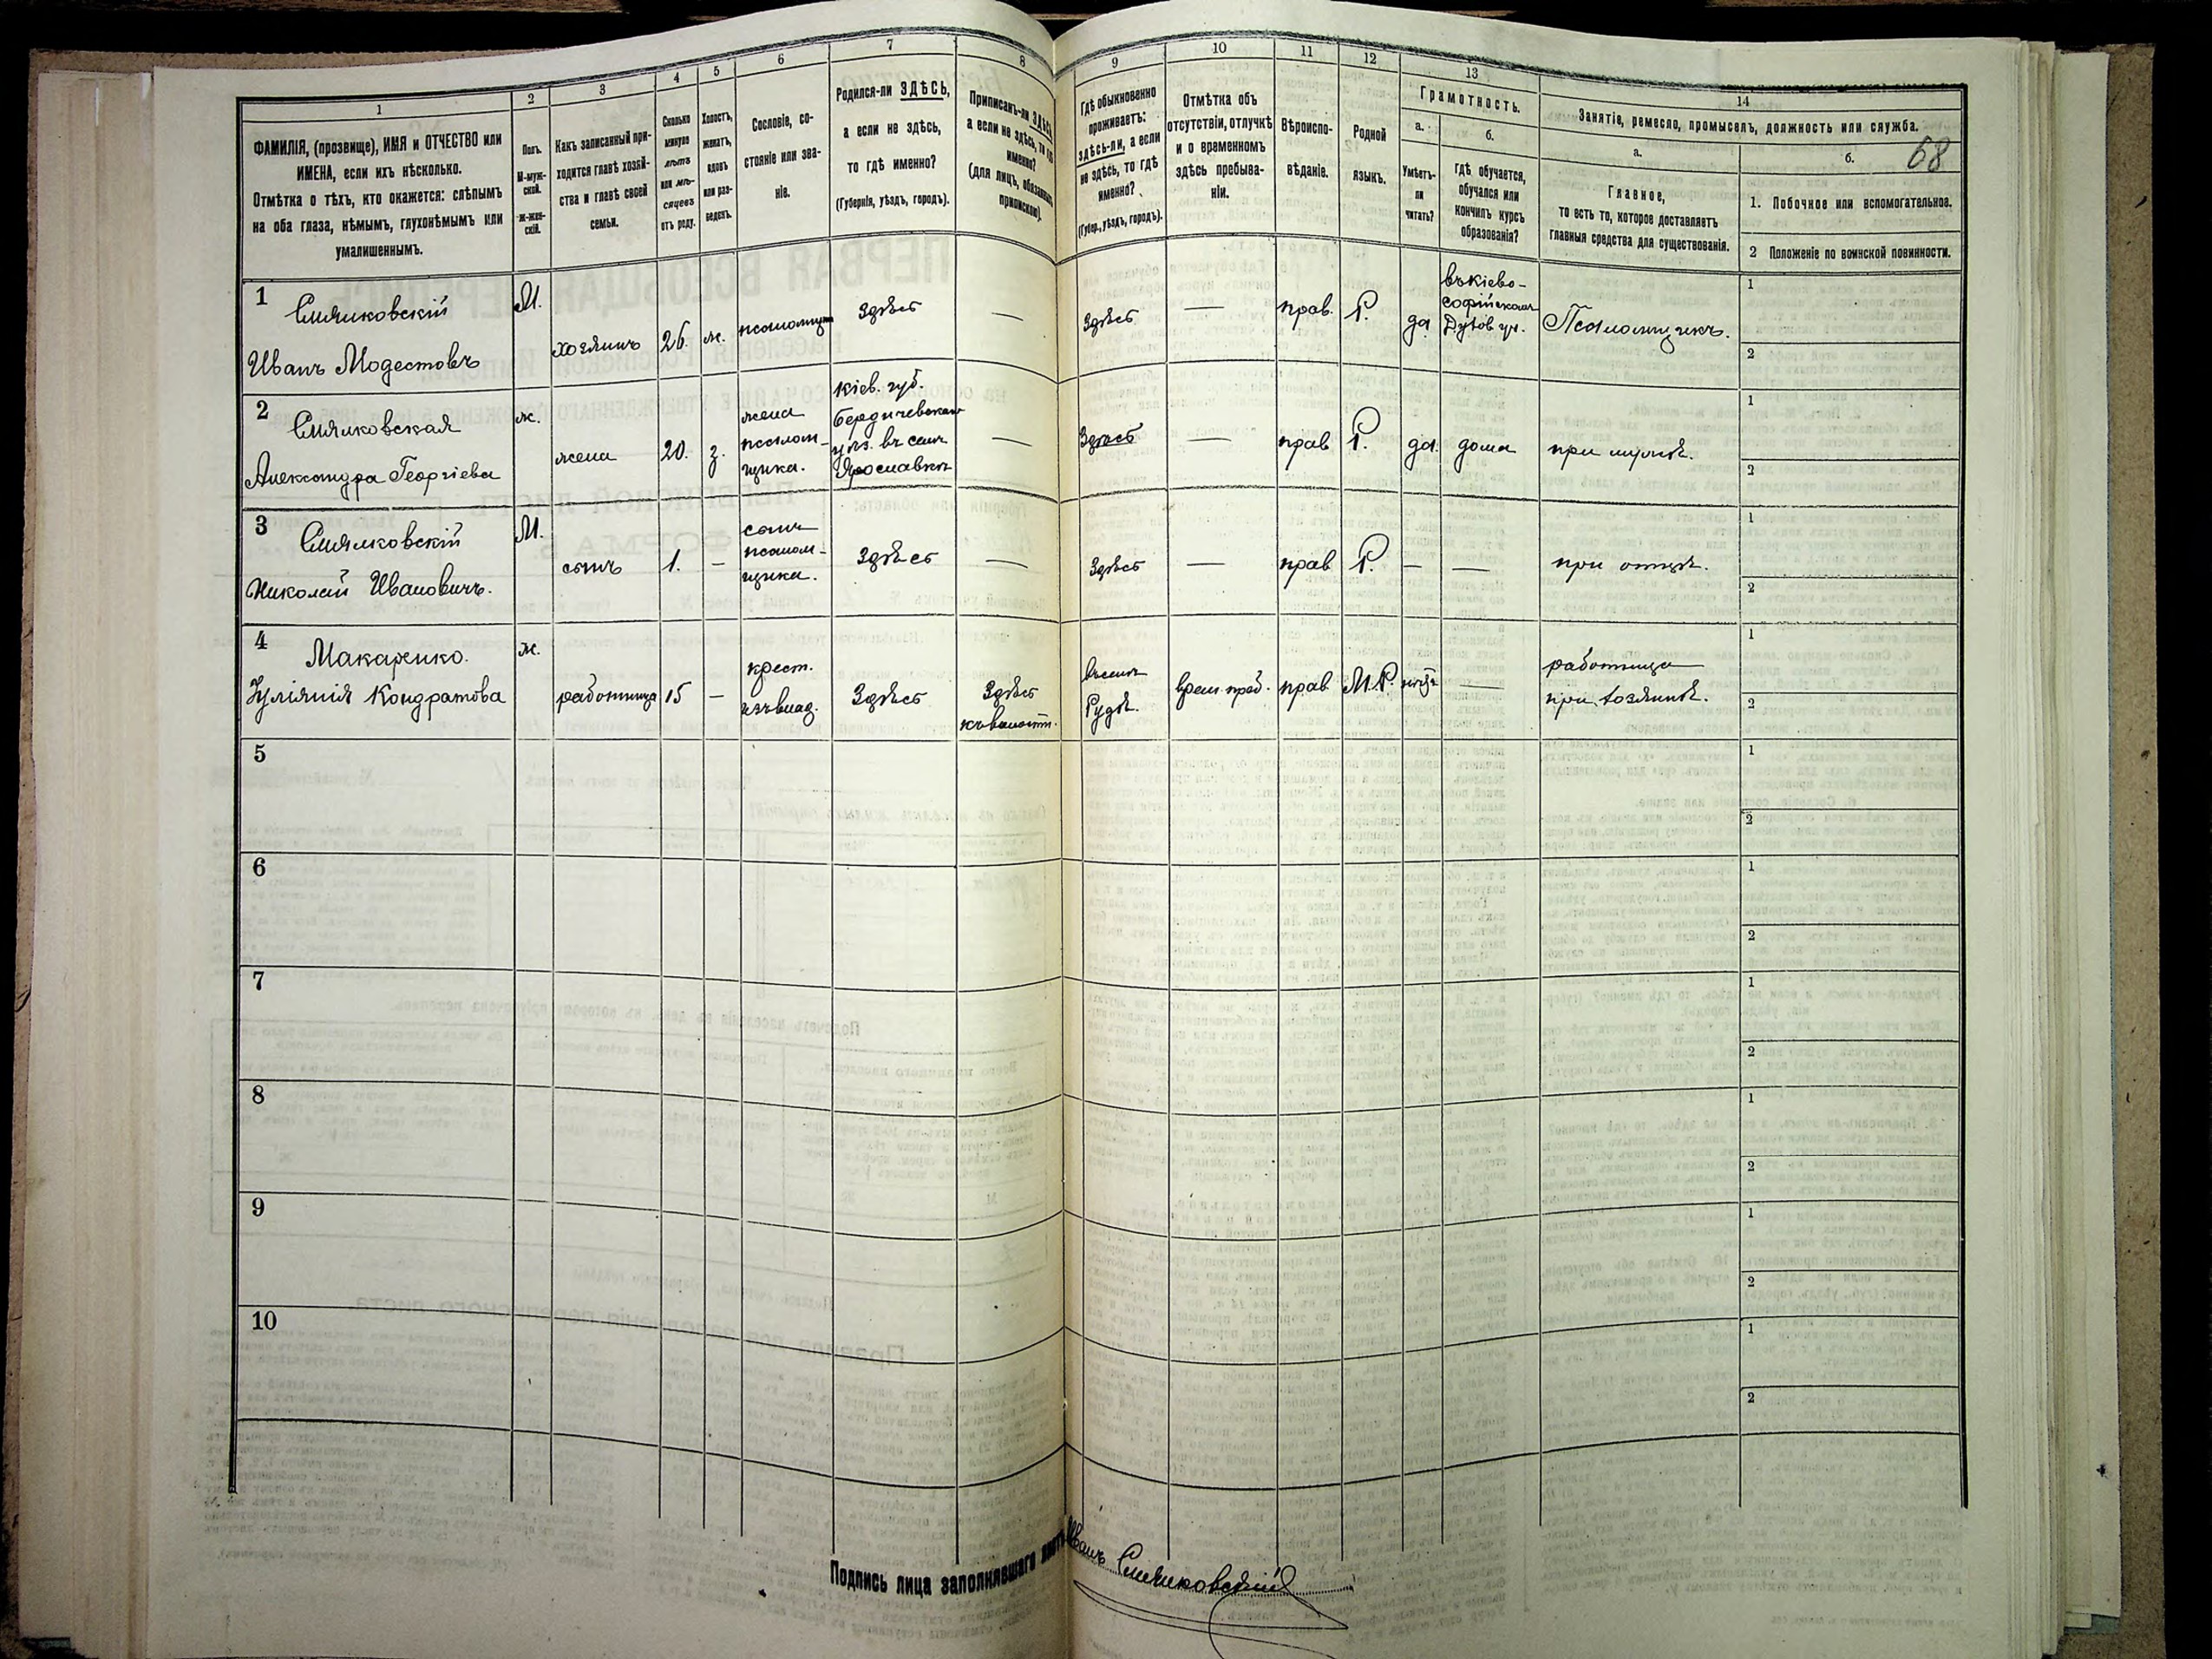 1
2
3
4
5
6
7
8
9
10
11
12
13
14
68
ФАМИЛІЯ, (прозвище), ИМЯ и ОТЧЕСТВО или
ИМЕНА, если ихъ нѣсколько.
Отмѣтка о тѣхъ, кто окажется: слѣпымъ
на оба глаза, нѣмымъ, глухонѣмымъ или
умалишеннымъ.
Полъ.
М-муж-
ской.
Ж-жен-
скій.
Какъ записанный при-
ходится главѣ хозяй-
ства и главѣ своей
семьи.
Сколько
минуло
лѣтъ
или мѣ-
сяцевъ
отъ роду.
Холостъ,
женатъ,
вдовъ
или раз-
веденъ.
Сословіе, со-
стояніе или зва-
ніе.
Родился-ли ЗДѢСЬ,
а если не здѣсь,
то гдѣ именно?
(Губернія, уѣздъ, городъ).
Приписанъ-ли ЗДѢСЬ,
а если не здѣсь, то гдѣ
именно?
(для лицъ, обязанныхъ
припиской).
Гдѣ обыкновенно
проживаетъ:
здѣсь-ли, а если
не здѣсь, то гдѣ
именно?
(Губер., уѣздъ, городъ).
Отмѣтка объ
отсутствіи, отлучкѣ
и о временномъ
здѣсь пребыва-
ніи.
Вѣроиспо-
вѣданіе.
Родной
языкъ.
Грамотность.
а.
Умѣетъ-
ли
читать?
б.
Гдѣ обучается,
обучался или
кончилъ курсъ
образованія?
Занятіе, ремесло, промыселъ, должность или служба.
а.
Главное,
то есть то, которое доставляетъ
главныя средства для существованія.
б.
1. Побочное или вспомогательное.
2 Положеніе по воинской повинности.
1
Иванъ Модестовъ
М.
хозяинъ
26.
ж.
Здѣсь
—
Здѣсь
—
прав.
Р.
да
въ Кіево-
Софійском
Духов. уч.
Псаломщикъ.
1
2
2
Александра Георгіева
ж.
жена
20.
з.
жена
псалом-
щика.
Кіев. губ.
Бердичевскаго
уѣз. въ селѣ
Ярославкѣ
—
Здѣсь
—
прав
Р.
да
дома
при мужѣ.
1
2
3
Николай Ивановичъ.
М.
сынъ
1.
—
сынъ
псалом-
щика.
Здѣсь
—
Здѣсь
—
прав
Р.
—
—
при отцѣ.
1
2
4
Макаренко.
Іуліянія Кондратова
ж.
работница
15
—
крест.
изъ влад.
Здѣсь
Здѣсь
къ волости.
въ селѣ
Рудѣ.
врем. преб.
прав
М.Р.
нѣтъ
—
работница
при хозяинѣ.
1
2
5
1
2
6
1
2
7
1
2
8
1
2
9
1
2
10
1
2
Подпись лица заполнявшаго листъ Иванъ